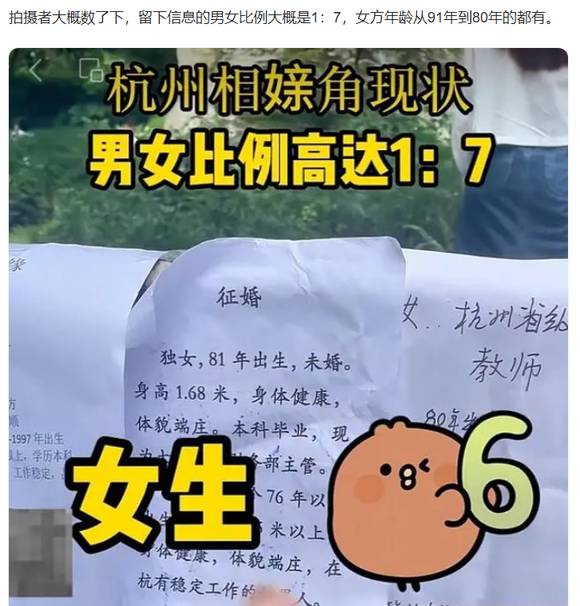 拍摄者大概数了下，留下信息的男女比例大概是1：7，女方年龄从91年到80年的都有。
杭州相嫁角现状
男女比例高达1：7
征婚
独女，81年出生，未婚。
身高1.68米，身体健康，
体貌端庄。本科毕业，现
务部主管。
76年以
米以上
身体健康，体貌端庄，在
杭有稳定工作的
人。
女．．杭州省级
教师
80年
-1997年出生
上，学历本科
工作稳定，
女生
6